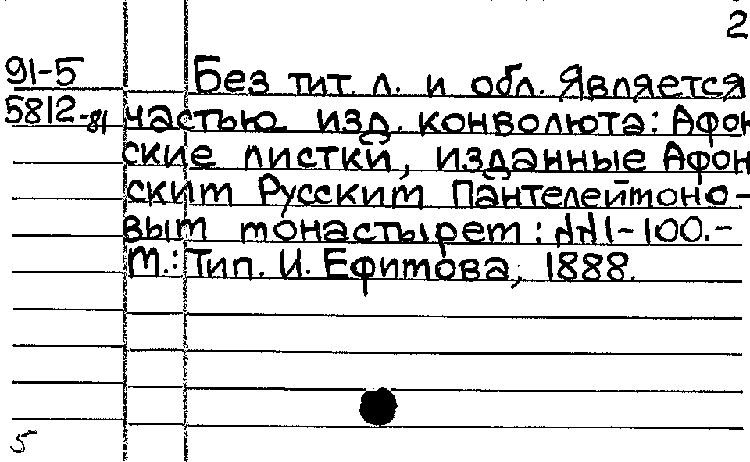 2
91-5 Без тит. л. и обл. Является
5812-81 частью изд. конволюта: Афон
ские листки, изданные Афон
ским Русским Пантелеймоно-
вым монастырем: №№1-100.-
М.: Тип. И. Ефимова, 1888.
5